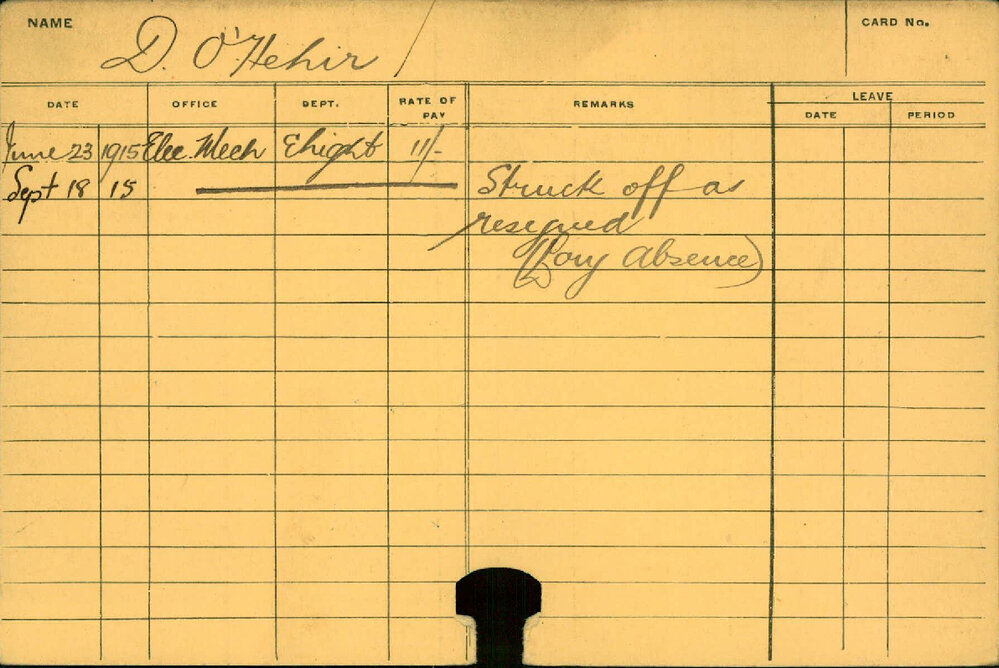 NAME D. O'Hehir CARD No.
DATE OFFICE DEPT. RATE OF PAY REMARKS LEAVE
DATE PERIOD
June 23 1915 Elec. Mech Ehight 11/-
Sept 18 15 Struck off as
resigned
(Long Absence)